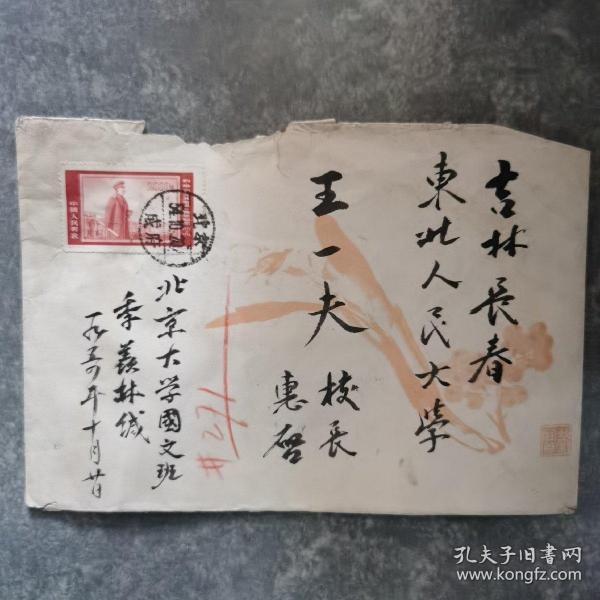 吉林長春
東北人民大學
王一夫 校長
惠啓
北京大学國文班
季羨林缄
一九五四年十月廿
#271
中國人民郵政
孔夫子旧书网
www.kongfz.com